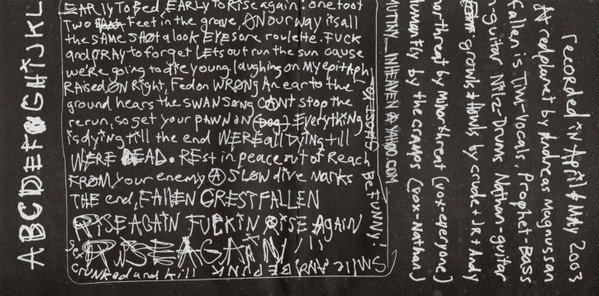 EARLY to Bed EARLY to Rise again, one foot
Two Feet in the grave, ON our way its all
the SAME SHOt a look EYESore roulette. Fuck
and PRAY to forget Lets out run the sun cause
we're going to die young laughing on My epitaph
RAised ON Right, Fed on WRONG An ear to the
ground hears the SWAN SONG CANt stop the
rerun, so get your pawn on Everything
is dying till the end WERE all Dying till
WERE DEAD. REst in peace out of Reach
FROM your enemy A slow dive marks
THE end, FAllEN CRESTFALLEN
RISE AGAIN FUCKIN RISE AgAIN
RiSE AGAiN!!
Get
crunked and kill
SMILE AND BE PUNK
Be FUNNY!
ABCDEFGHIJKL
recorded in April & May 2003
At redplanet by Andreas Magnusson
fallen is Tim-Vocals. Prophet-Bass
guitar Nitz-Drums Nathan-guitar
growls & Howls by crude & JR & Andy
by Minorthreat (vox-everyone)
by the cramps (vox-Nathan)
@YAHOO.COM